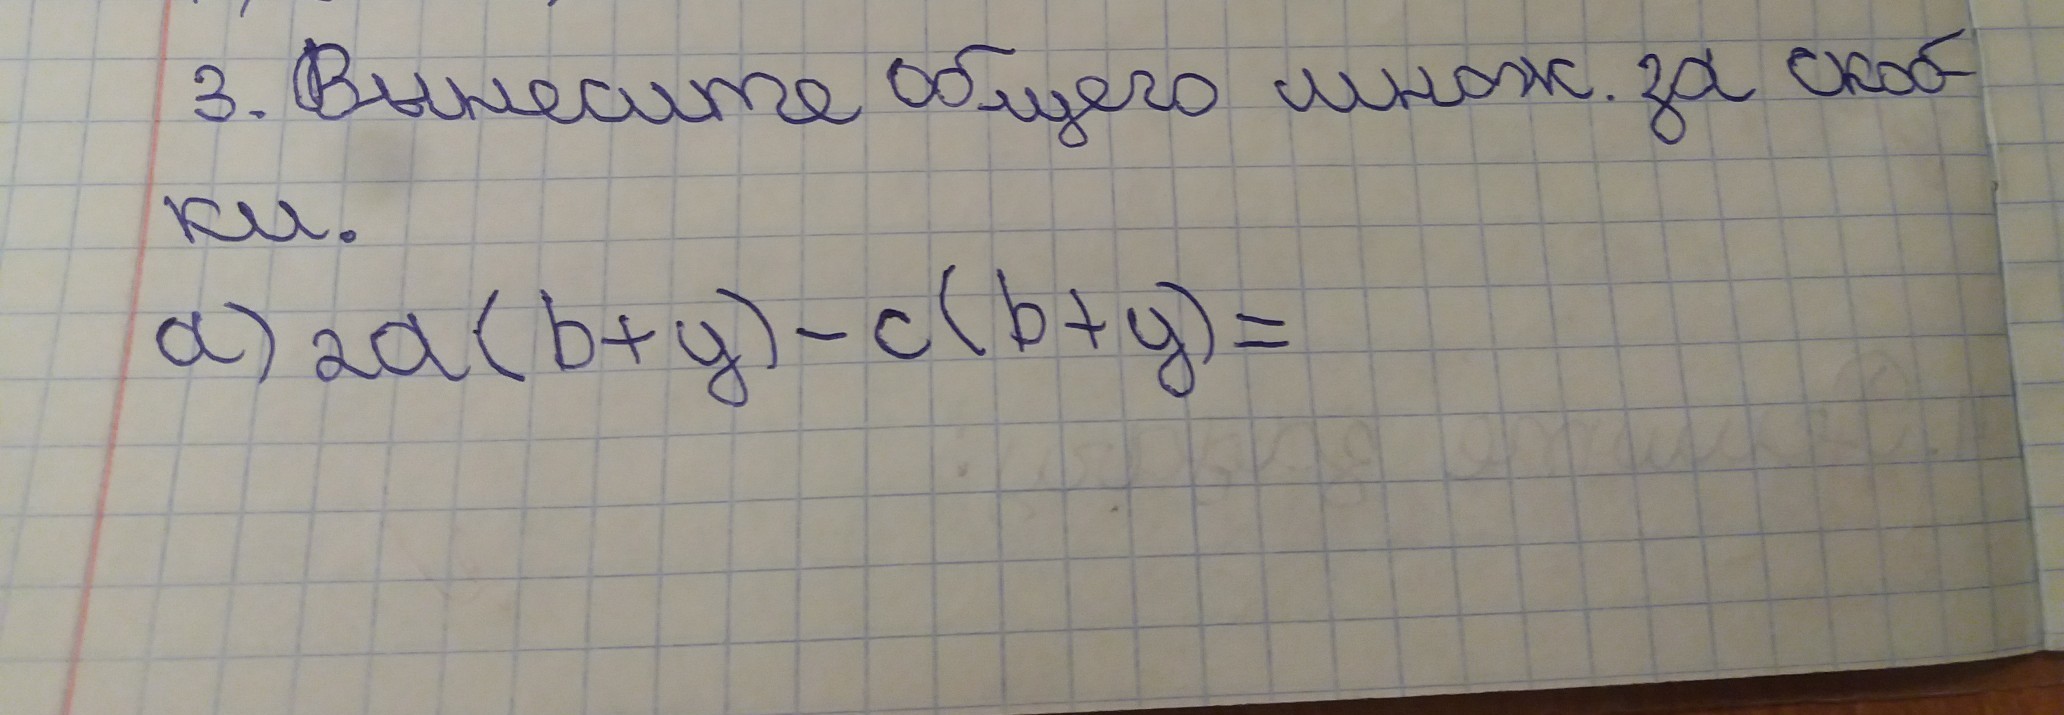 3. Вынесите общего множ. за скоб-
ки.
а) 2a(b+y)-c(b+y)=